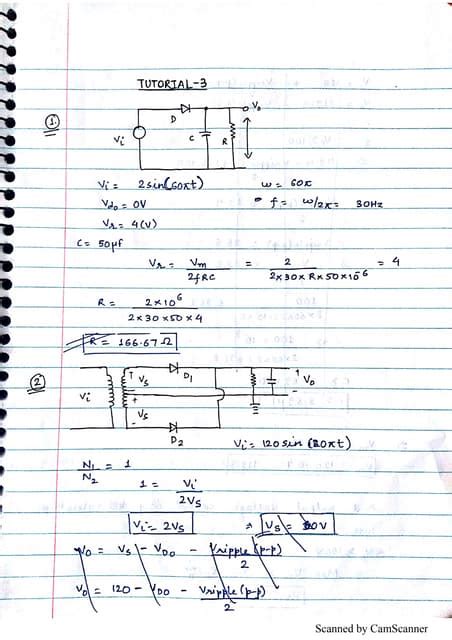 TUTORIAL-3
①
D
V₀
Vi
C
R
Vi = 2sin(60πt)
ω = 60π
Vdo = 0V
f = ω/2π = 30Hz
Vr = 4(V)
C = 50μf
Vr = Vm / 2fRC = 2 / 2×30×R×50×10⁻⁶ = 4
R = 2×10⁶ / 2×30×50×4
R = 166.67 Ω
②
Vi
Vs
Vs
D1
D2
+
V₀
-
Vi = 120sin(20πt)
N1/N2 = 1
1 = Vi / 2Vs
Vi = 2Vs
⇒ Vs = 60V
V₀ = Vs - VDO - Vripple(p-p) / 2
V₀ = 120 - VDO - Vripple(p-p) / 2
Scanned by CamScanner